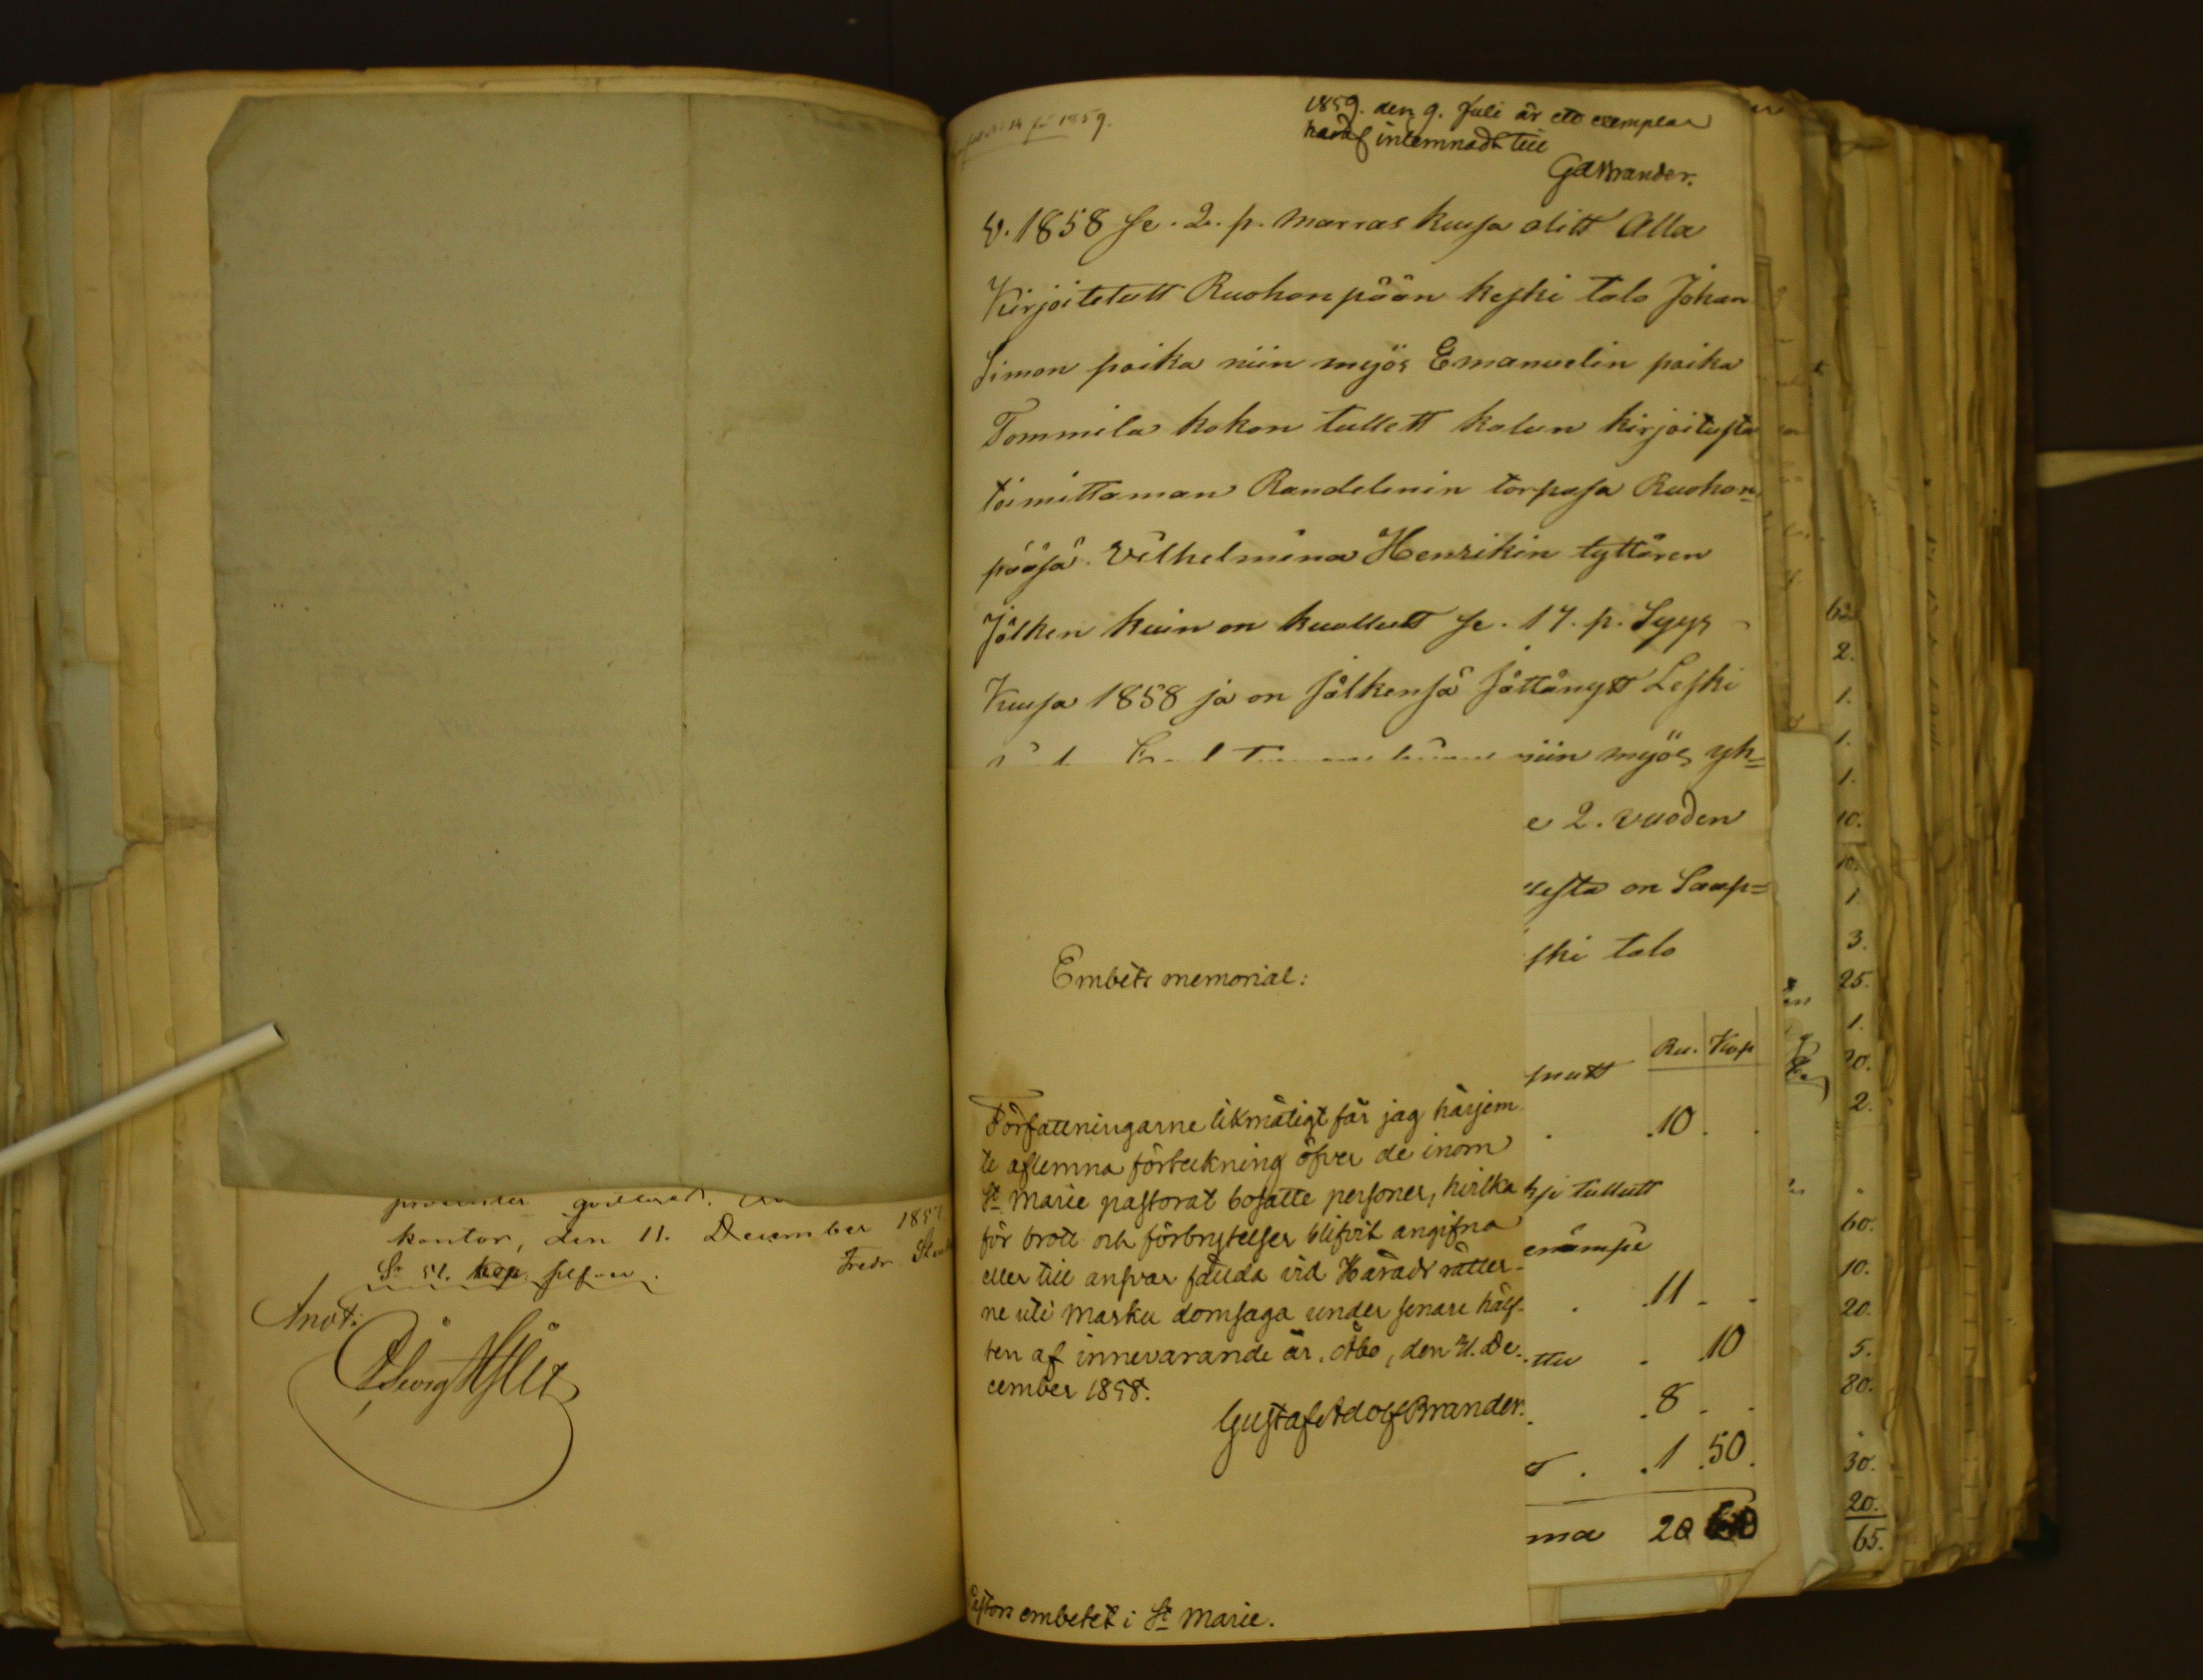 procenter
kontor, den 11. December 1857.
Fredr.
Anot:
1859.
1859. den 9. Juli är ett exemplar
häraf inlemnadt till
GABrander.
V. 1858 se. 2. p. marras kuusa olitt Alla
Kirjoitetutt Ruohonpään keski talo Johan
Simon poika niin myös Emanuelin poika
Tommila kokon tullett kalun kirjoitusta
toimittaman Randelinin torpasa Ruohon=
pääsä. Vilhelmina Henrikin tyttären
Jälken kuin on kuollutt se. 17. p. Syys
Kuusa 1858 ja on jälkensä jättänytt Leski
niin myös yh=
e 2. vuoden
esta on Saap=
ski talo
Embets memorial:
Ru. Kop
Författningarne likmätigt får jag härjem-
te aflemna förteckning öfver de inom
St Marie pastorat bosatte personer, hvilka
för brott och förbrytelser blifvit angifna
eller till ansvar fällda vid Härads rätter-
ne uti Masku domsaga under senare hälf-
ten af innevarande år. Åbo, den 31. De-
cember 1858.
Gustaf Adolf Brander.
Pastors embetet i St Marie.
. 10 . .
ksi tullutt
. . 11 . .
ttu . . 10
. 8 . .
. . 1 . 50.
ma 20 60
62.
2.
1.
1.
1.
10.
10.
1.
3.
25.
1.
20.
2.
60.
10.
20.
5.
80.
30.
20.
65.